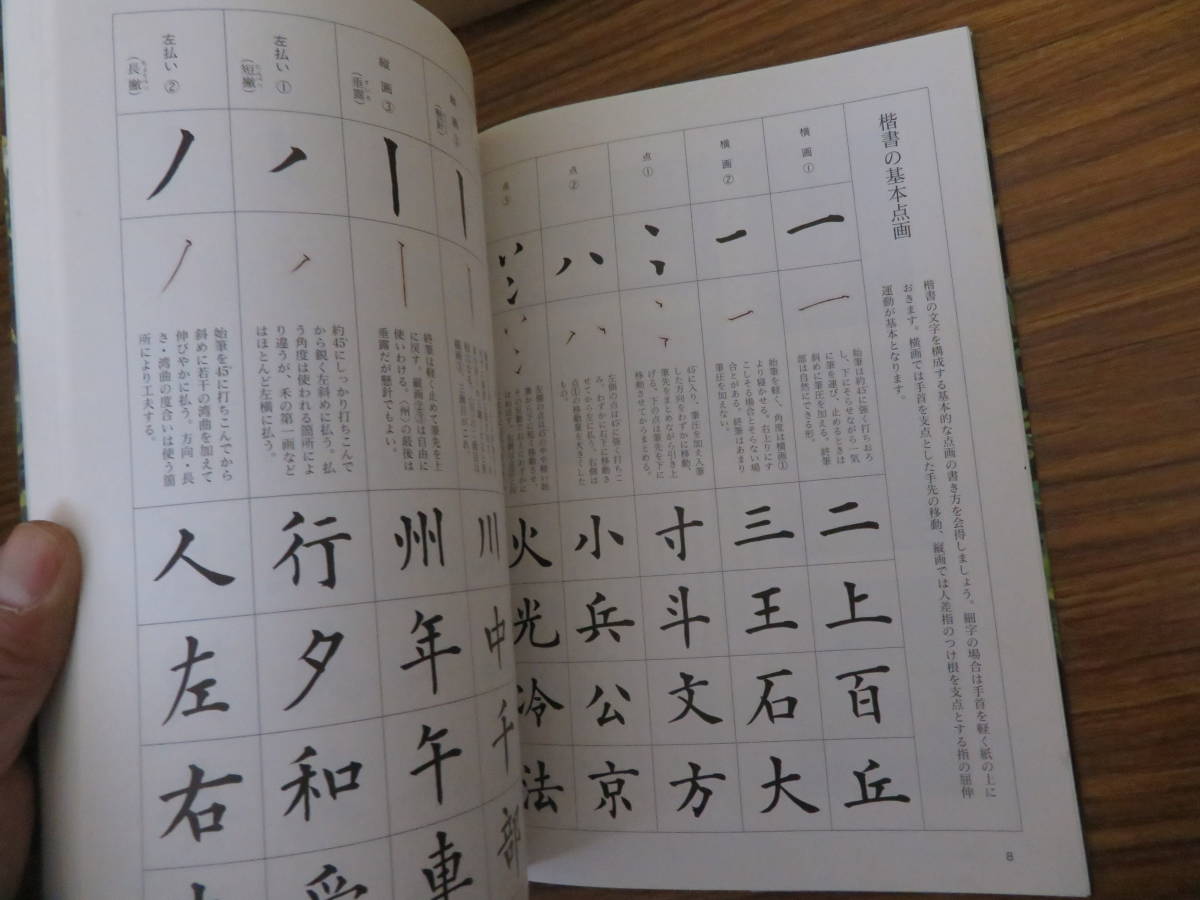 楷書の基本点画
楷書の文字を構成する基本的な点画の書き方を会得しましょう。細字の場合は手首を軽く紙の上に
おきます。横画では手首を支点とした手先の移動、縦画では人差指のつけ根を支点とする指の屈伸
運動が基本となります。
横画①
一
始筆は約45°に強く打ちおろ
し、下にそらせながら一気
に筆を運び、止めるときは
斜めに筆圧を加える。終筆
部は自然にできる形。
二
上
百
丘
横画②
始筆を軽く、角度は横画①
より寝かせる。右上りにす
こしそる場合とそらない場
合とがある。終筆はあまり
筆圧を加えない。
三
王
石
大
点①
45°に入り、筆圧を加え入筆
した方向をわずかに移動、
筆先をまとめながら引き上
げる。下の点は筆先を下に
移動させてからまとめる。
寸
斗
文
方
点②
左側の点は45°に強く打ちこ
み、わずかに右下に移動さ
せてから左に払う。右側は
点①の移動量を大きくした
もの。
小
兵
公
京
点③
火
光
冷
法
川
中
千
部
縦画③
(垂露)
終筆は軽く止めて筆先を上
に戻す。縦画②③は自由に
使いわける。〈州〉の最後は
垂露だが懸針でもよい。
州
年
午
車
左払い①
(短撇)
約45°にしっかり打ちこんで
から鋭く左斜めに払う。払
う角度は使われる箇所によ
り違うが、禾の第一画など
はほとんど左横に払う。
行
夕
和
受
左払い②
(長撇)
始筆を45°に打ちこんでから
斜めに若干の湾曲を加えて
伸びやかに払う。方向・長
さ・湾曲の度合いは使う箇
所により工夫する。
人
左
右
8